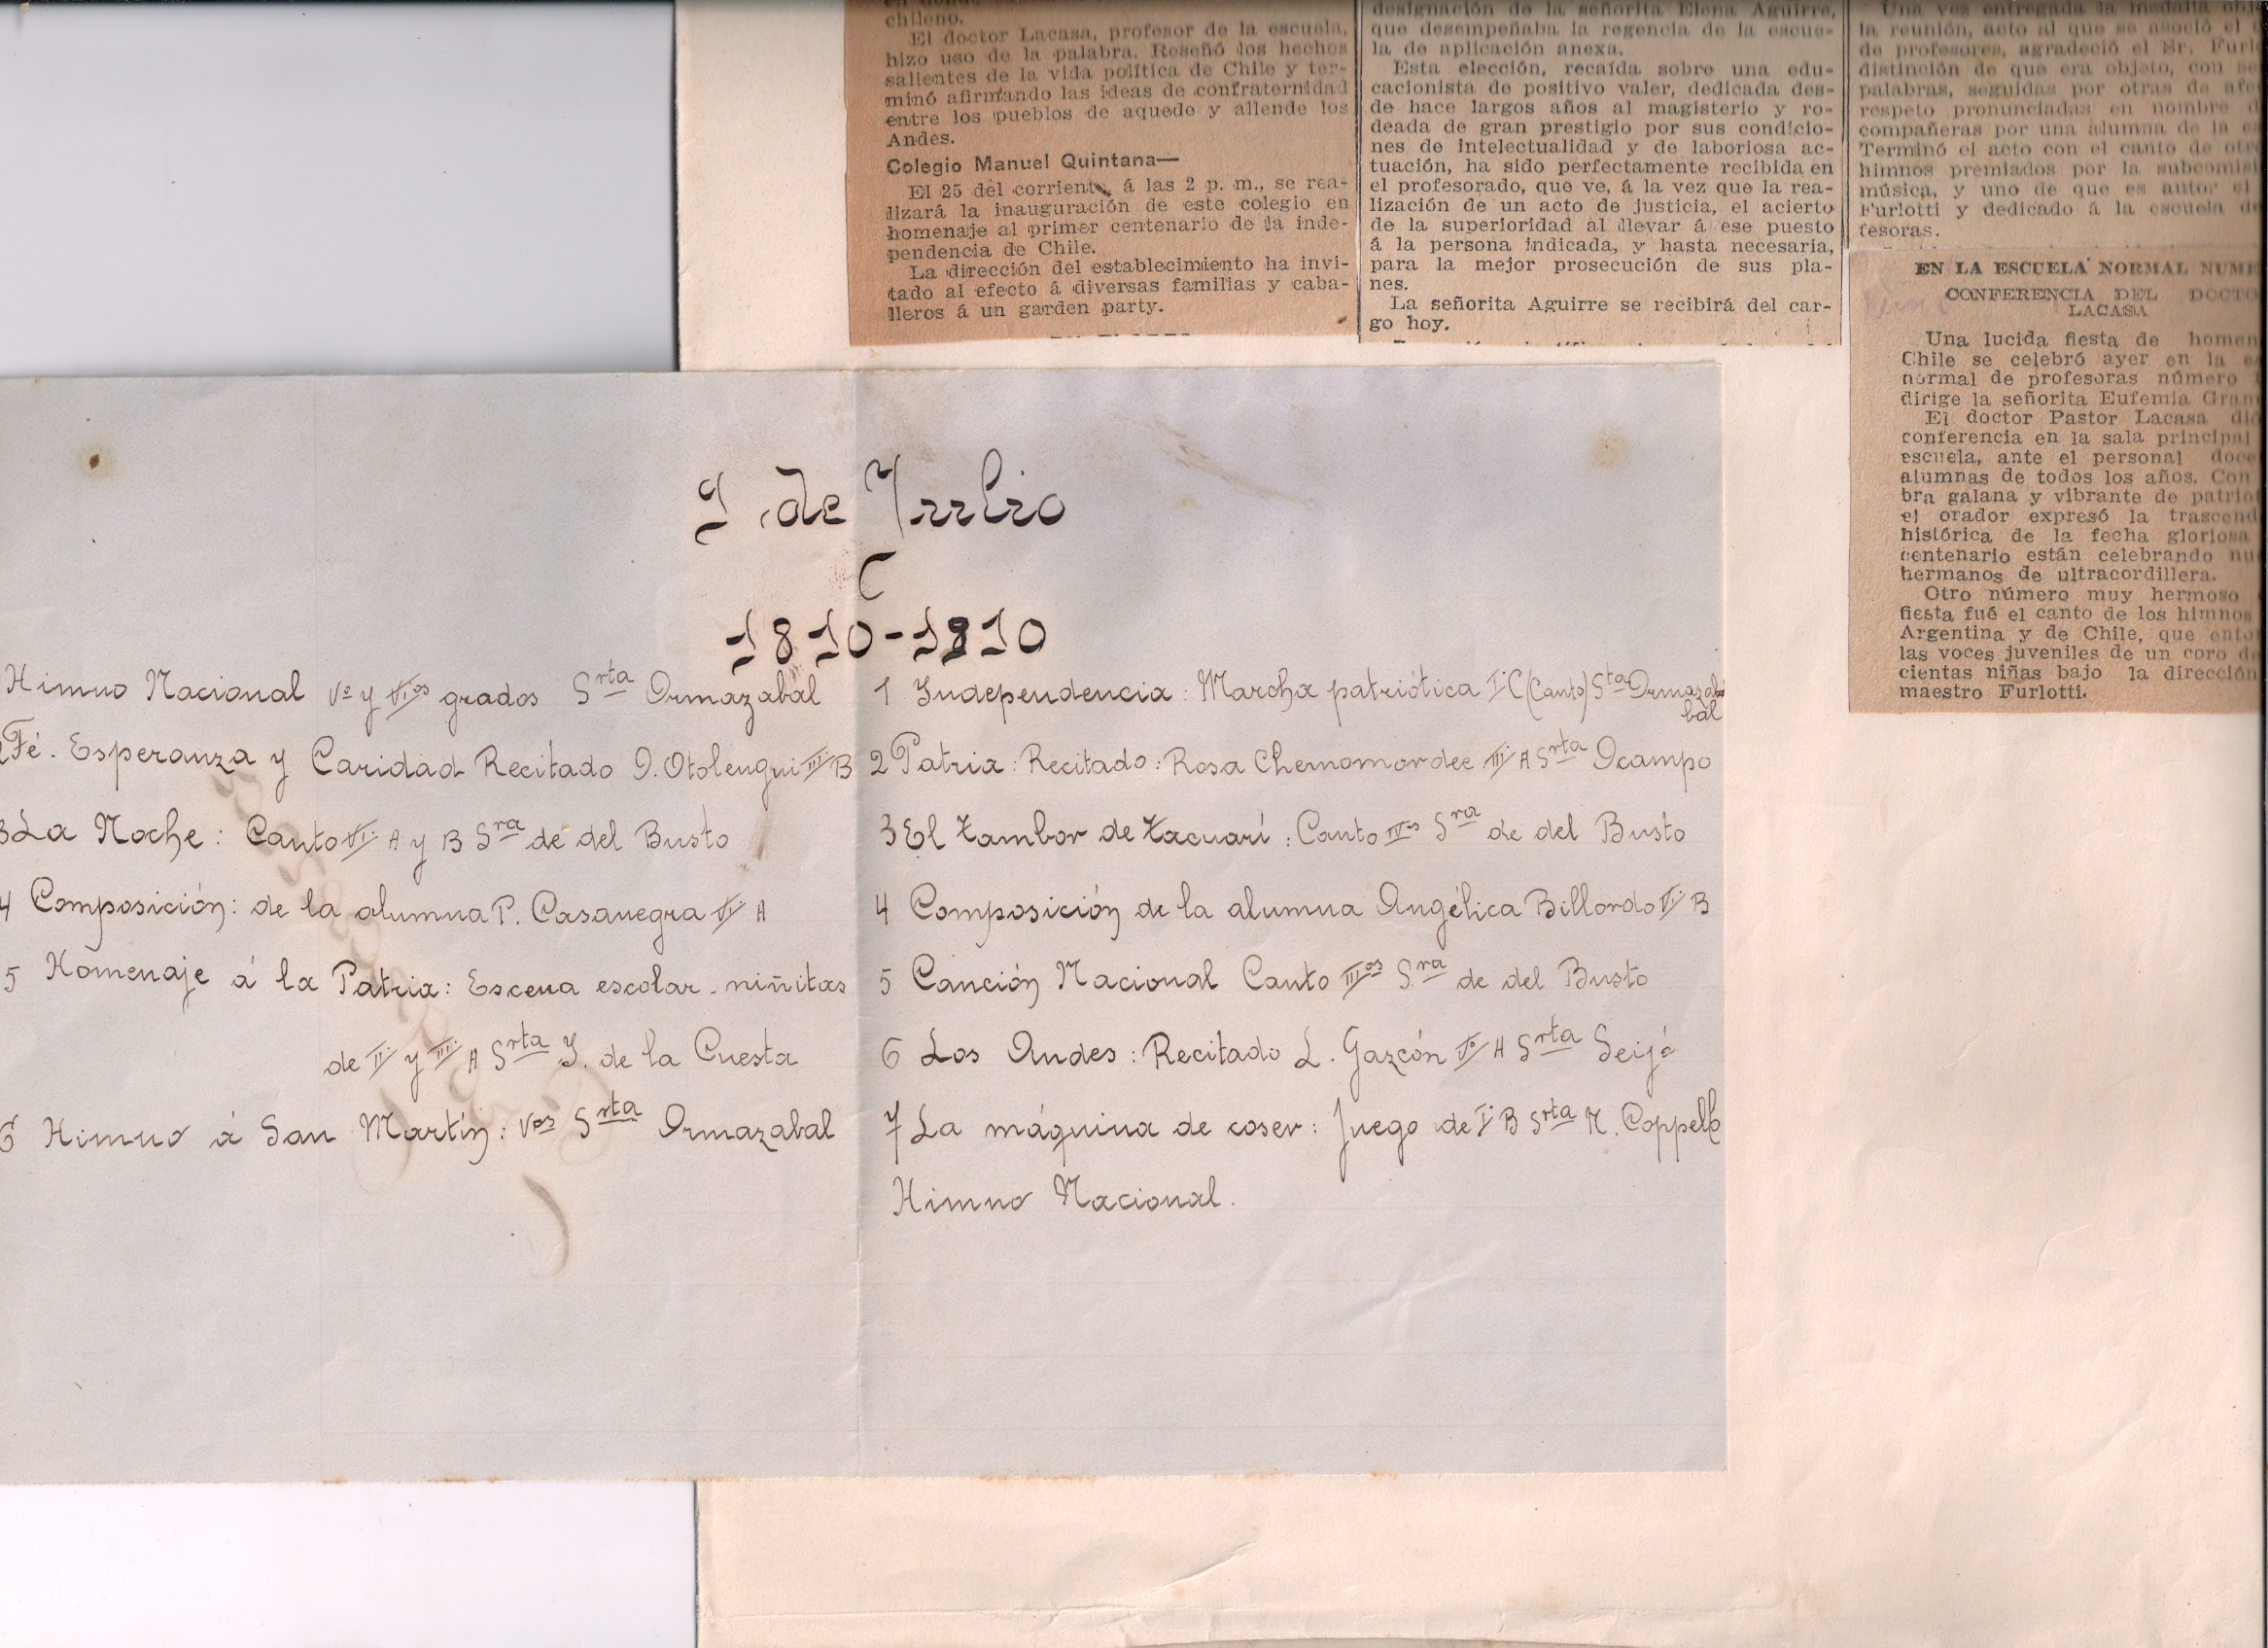 chileno.
El doctor Lacasa, profesor de la escuela,
hizo uso de la palabra. Reseñó los hechos
salientes de la vida política de Chile y ter-
minó afirmando las ideas de confraternidad
entre los pueblos de aquede y allende los
Andes.
Colegio Manuel Quintana—
El 25 del corriente, á las 2 p. m., se rea-
lizará la inauguración de este colegio en
homenaje al primer centenario de la inde-
pendencia de Chile.
La dirección del establecimiento ha invi-
tado al efecto á diversas familias y caba-
lleros á un garden party.
designación de la señorita Elena Aguirre,
que desempeñaba la regencia de la escue-
la de aplicación anexa.
Esta elección, recaída sobre una edu-
cacionista de positivo valer, dedicada des-
de hace largos años al magisterio y ro-
deada de gran prestigio por sus condicio-
nes de intelectualidad y de laboriosa ac-
tuación, ha sido perfectamente recibida en
el profesorado, que ve, á la vez que la rea-
lización de un acto de justicia, el acierto
de la superioridad al llevar á ese puesto
á la persona indicada, y hasta necesaria,
para la mejor prosecución de sus pla-
nes.
La señorita Aguirre se recibirá del car-
go hoy.
Una vez entregada la medalla
la reunión, acto al que se asoció el
de profesores, agradeció el Sr.
distinción de que era objeto, con
palabras, seguidas por otras de
respeto pronunciadas en nombre
compañeras por una alumna de la
Terminó el acto con el canto de
himnos premiados por la
música, y uno de que es autor el
Furlotti y dedicado á la escuela
fesoras.
EN LA ESCUELA NORMAL
CONFERENCIA DEL
LACASA
Una lucida fiesta de
Chile se celebró ayer en la
normal de profesoras número
dirige la señorita Eufemia
El doctor Pastor Lacasa
conferencia en la sala principal
escuela, ante el personal
alumnas de todos los años. Con
bra galana y vibrante de
el orador expresó la
histórica de la fecha gloriosa
centenario están celebrando
hermanos de ultracordillera.
Otro número muy hermoso
fiesta fué el canto de los himnos
Argentina y de Chile, que
las voces juveniles de un coro
cientas niñas bajo la dirección
maestro Furlotti.
9 de Julio
1810-1910
Himno Nacional Vº y VIos grados Srta Ormazabal
Fé. Esperanza y Caridad Recitado O. Otolengui III B
3 La Noche: Canto VI A y B Sra de del Busto
4 Composición: de la alumna P. Casanegra VI A
5 Homenaje á la Patria: Escena escolar niñitas
de II y III A Srta Y. de la Cuesta
6 Himno á San Martín: Vos Srta Ormazabal
1 Independencia: Marcha patriótica I C (Canto) Sta Ormaza-
bal
2 Patria: Recitado: Rosa Chernomordec III A Srta Ocampo
3 El Tambor de Tacuarí: Canto IVos Sra de del Busto
4 Composición de la alumna Angélica Billordo V B
5 Canción Nacional Canto IIIos Sra de del Busto
6 Los Andes: Recitado L. Gazcón Vº A Srta Seijó
7 La máquina de coser: Juego de I B Srta M. Coppello
Himno Nacional.